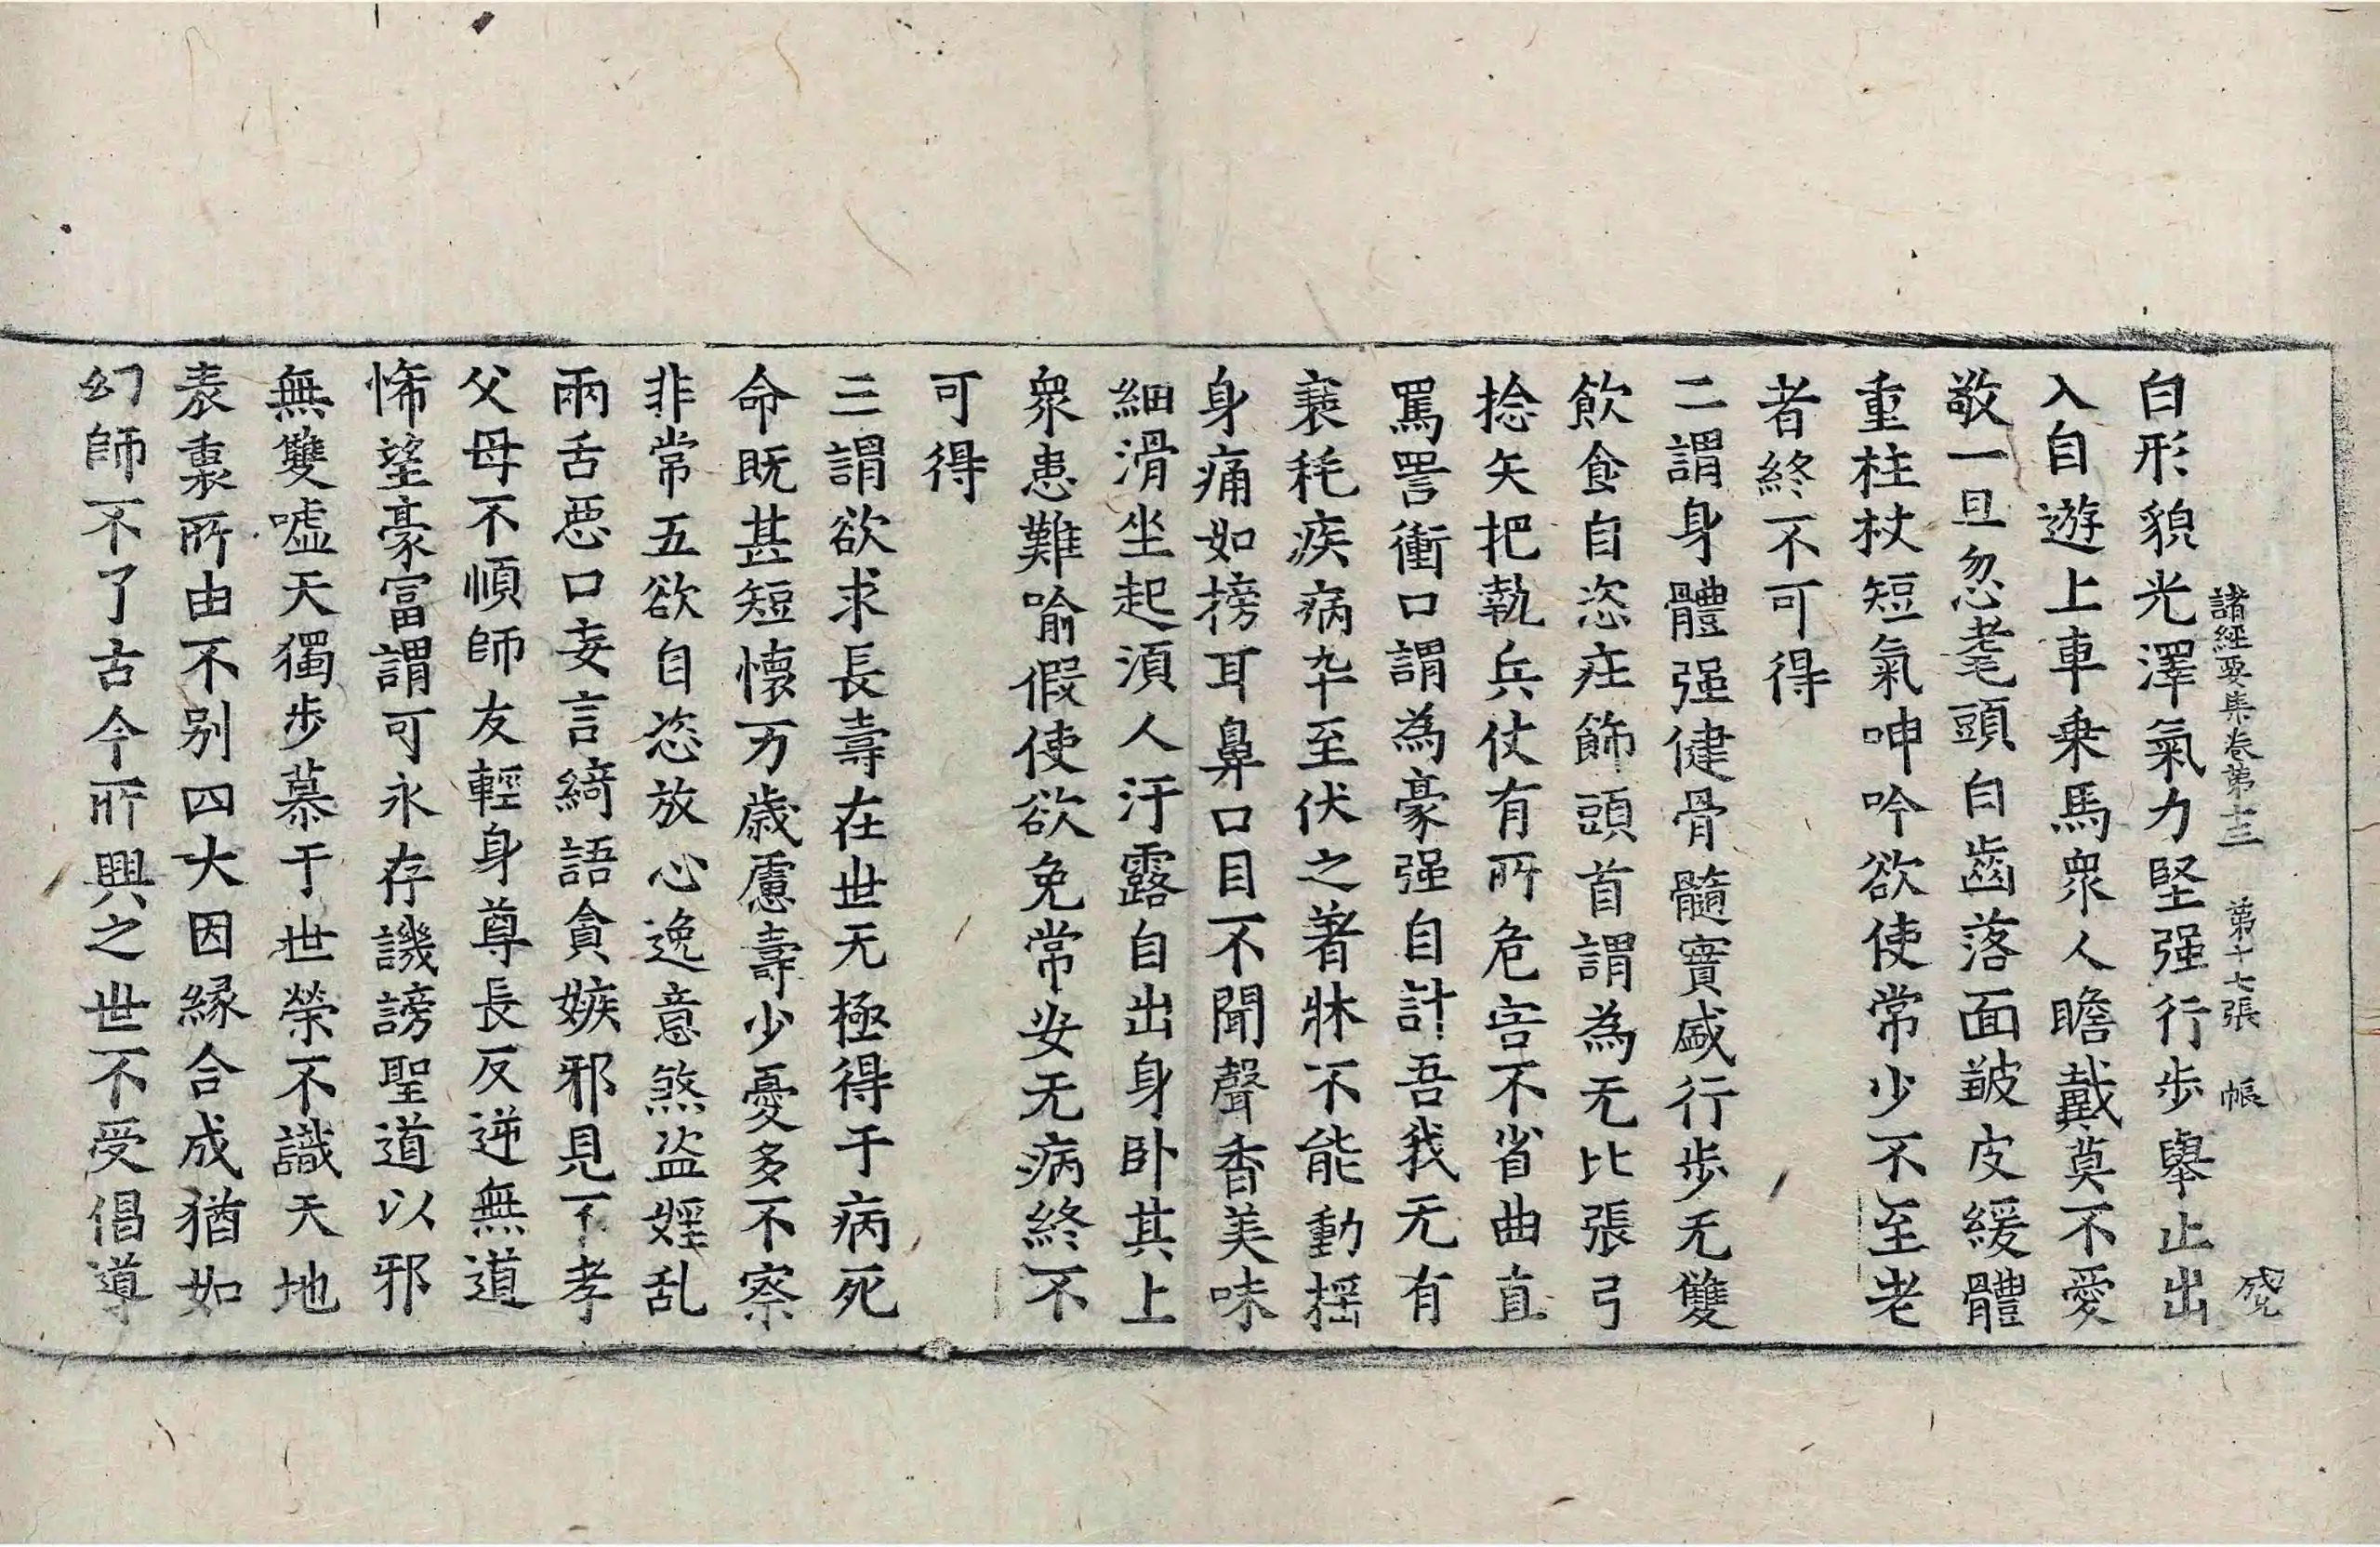 諸經要集卷第十三 第十七張 帳
白形貌光澤氣力堅强行步舉止出
入自遊上車乗馬衆人瞻戴莫不愛
敬一旦忽耄頭白齒落面皺皮緩體
重柱杖短氣呻吟欲使常少不至老
者終不可得
二謂身體强健骨髓實盛行步无雙
飲食自恣莊飾頭首謂為无比張弓
捻矢把執兵仗有所危害不省曲直
罵詈衝口謂為豪强自計吾我无有
衰耗疾病卒至伏之著牀不能動揺
身痛如搒耳鼻口目不聞聲香美味
細滑坐起湏人汙露自出身卧其上
衆患難喻假使欲免常安无病終不
可得
三謂欲求長壽在世无極得于病死
命既甚短懷万歲慮壽少憂多不察
非常五欲自恣放心逸意煞盗婬乱
兩舌惡口妄言綺語貪嫉邪見不孝
父母不順師友輕身尊長反逆無道
悕望豪冨謂可永存譏謗聖道以邪
無雙嘘天獨步慕于世榮不識天地
表裏所由不别四大因縁合成猶如
幻師不了古今所興之世不受倡導